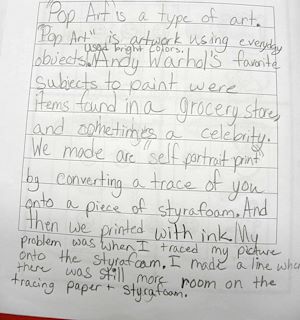 "Pop Art" is a type of art.
"Pop Art" is artwork using everyday
used bright colors.
objects. Andy Warhol's favorite
subjects to paint were
items found in a grocery store,
and sometimes a celebrity.
We made are "self portrait print"
by converting a trace of you
onto a piece of styrafoam. And
then we printed with ink. My
problem was when I traced my picture
onto the styrafoam. I made a line when
there was still more room on the
tracing paper + styrafoam.